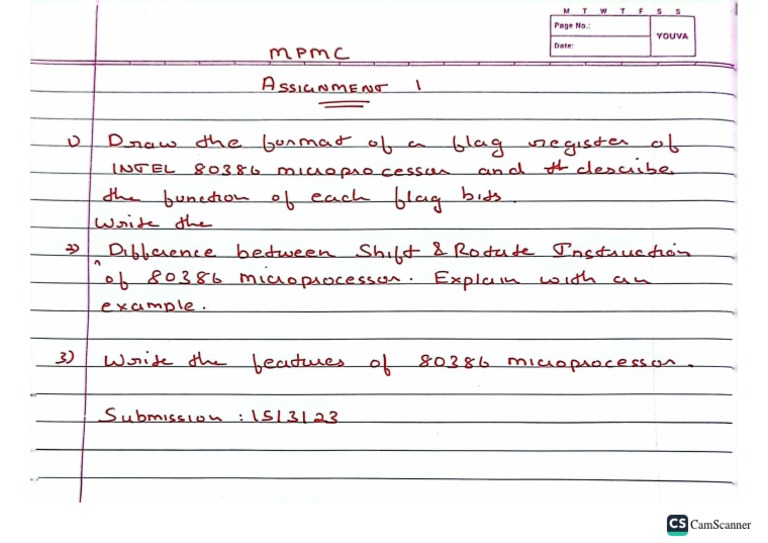 M T W T F S S
Page No.:
YOUVA
Date:
MPMC
ASSIGNMENT 1
1) Draw the format of a flag register of
INTEL 80386 microprocessor and describe
the function of each flag bits.
Write the
2) Difference between Shift & Rotate Instruction
of 80386 microprocessor. Explain with an
example.
3) Write the features of 80386 microprocessor.
Submission : 15/3/23
CS CamScanner